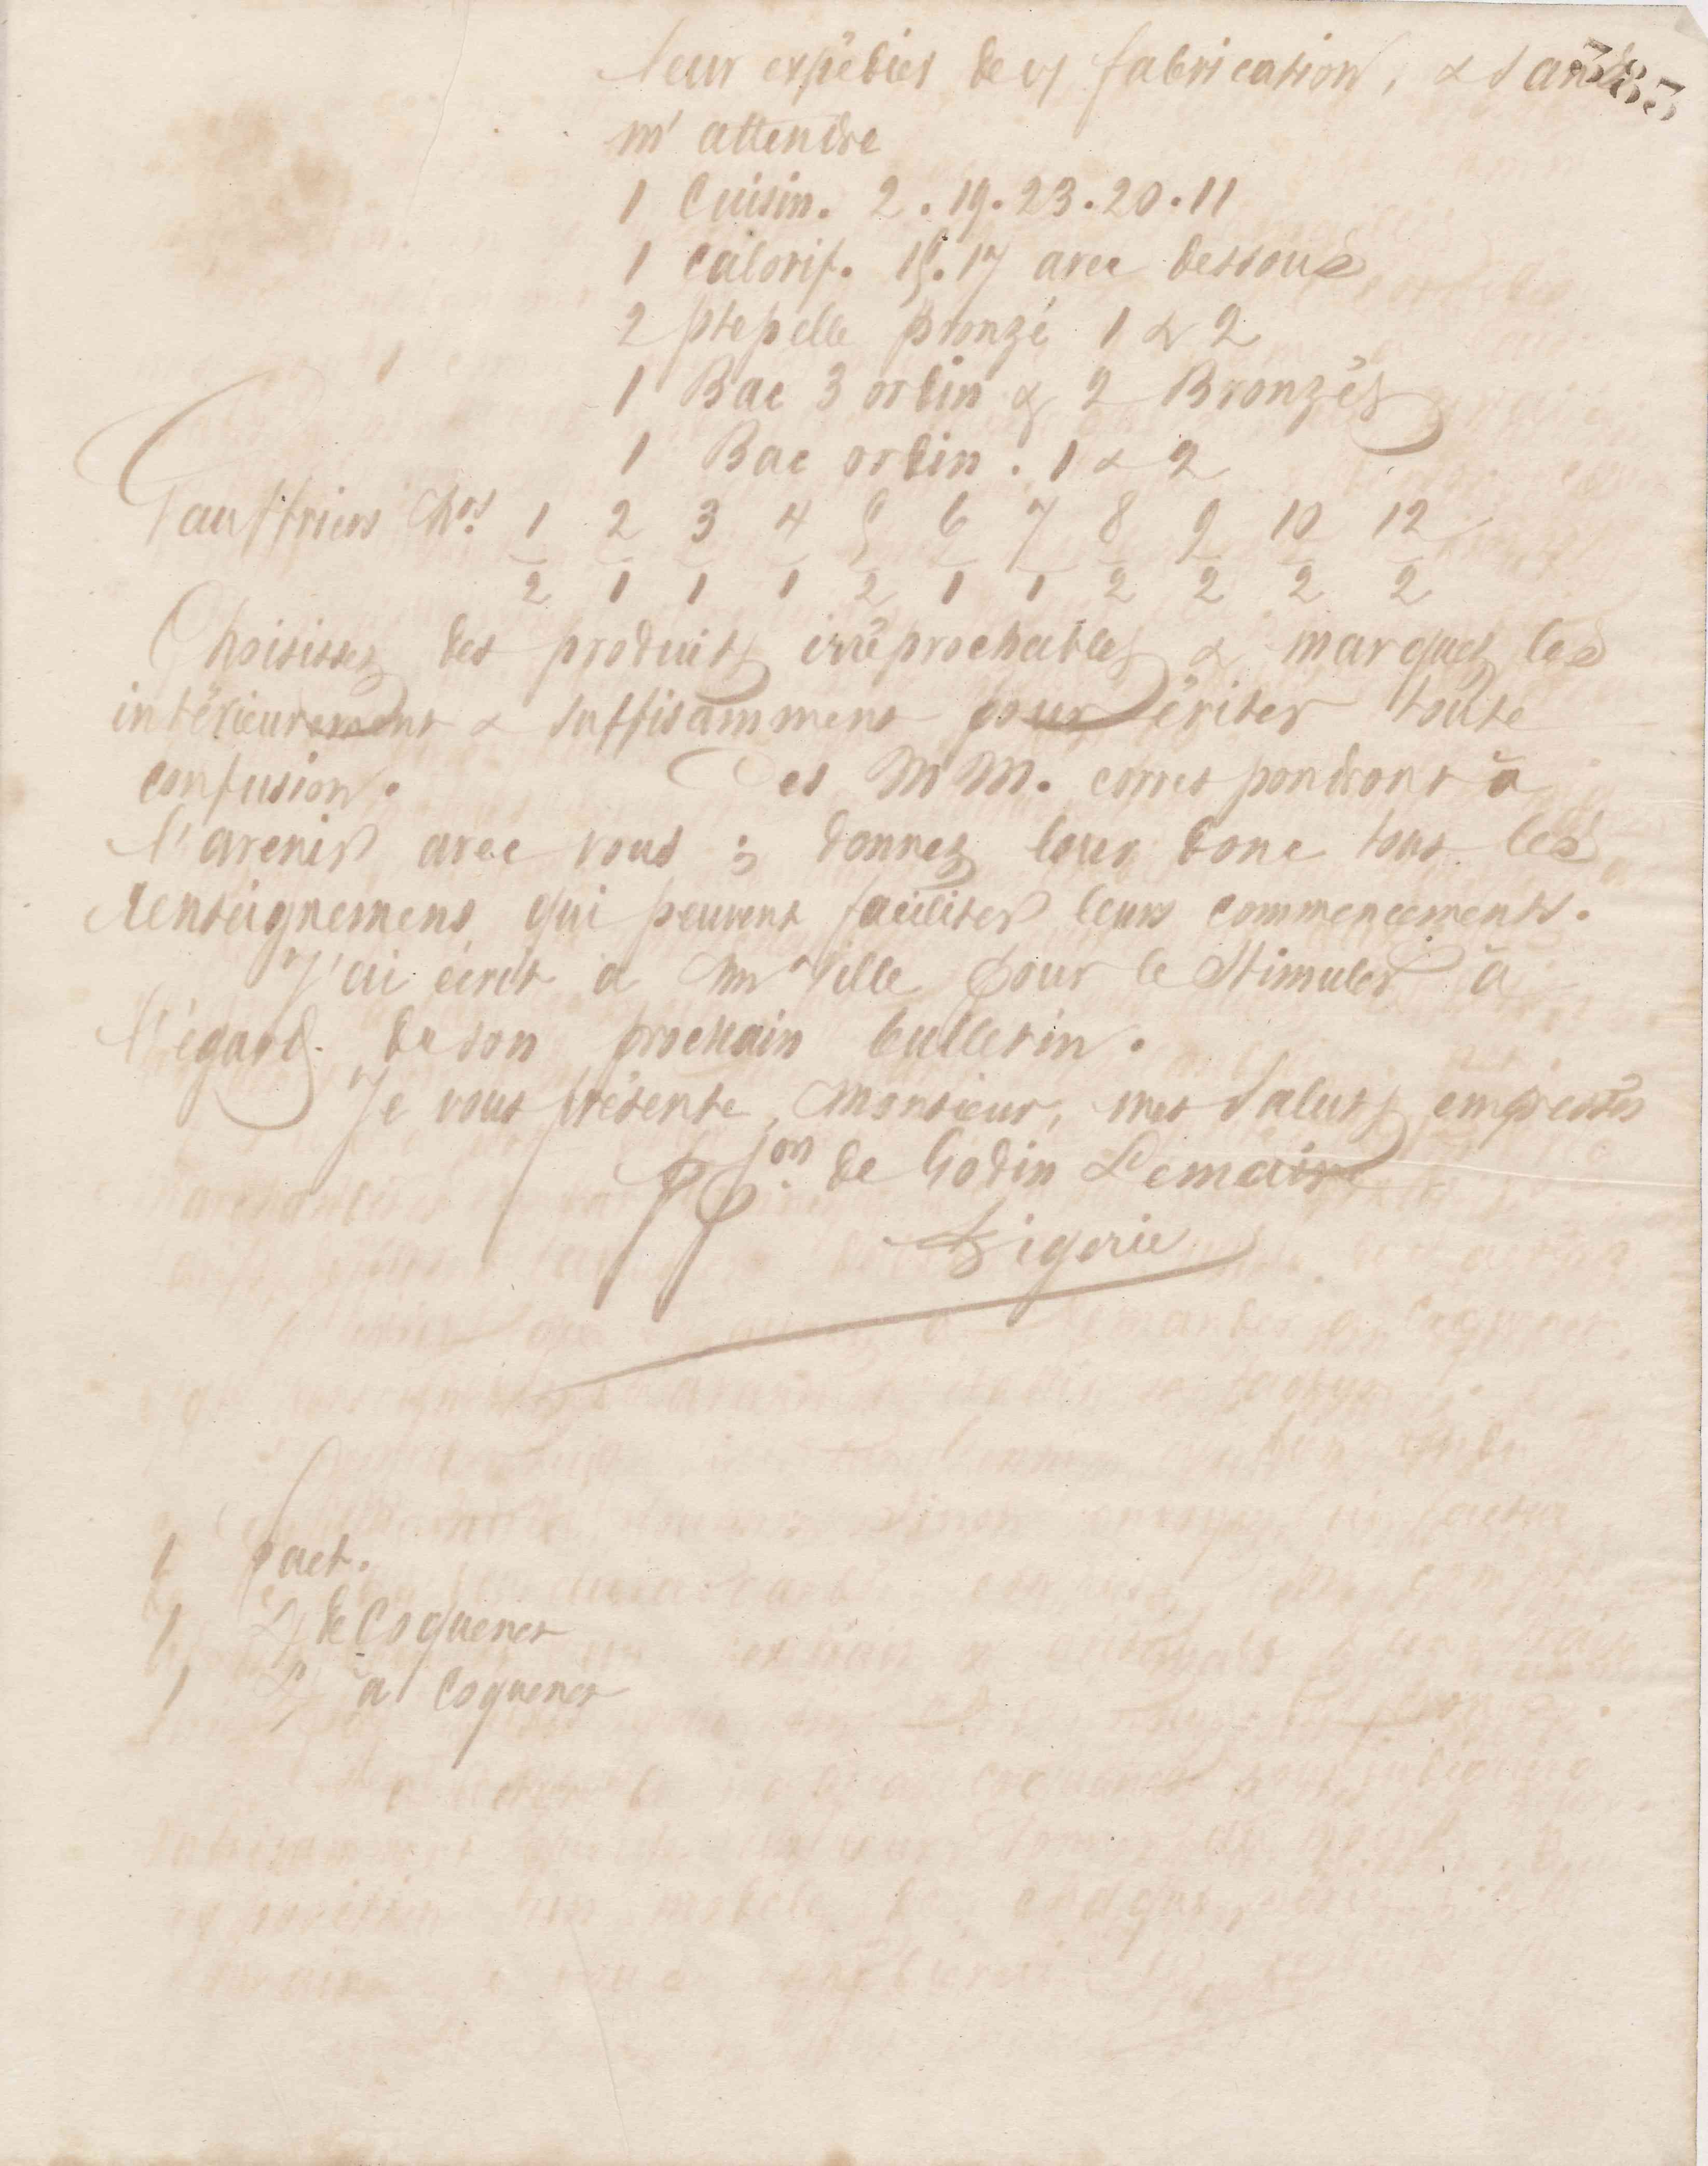 383
leur expédier de vs fabrication, & sans
m'attendre
1 Cuisin. 2. 19. 23. 20. 11
1 calorif. 15. 17 avec dessous
2 pte pelle bronzé 1 & 2
1 Bac 3 ordin & 2 Bronzés
1 Bac ordin. 1 & 2
1 2 3 4 5 6 7 8 9 10 12
2 1 1 1 2 1 1 2 2 2 2
Choisissez des produits irréprochables & marquez les
intérieurement & suffisamment pour éviter toute
confusion. Ces MM. correspondront à
l'avenir avec vous ; donnez leur donc tous les
renseignemens qui peuvent faciliter leurs commencements.
J'ai écrit à Mr Tille pour le stimuler à
l'égard de son prochain bulletin.
Je vous présente, Monsieur, mes saluts empressés
Pon. de Godin Lemaire
Ligerie
1 fact.
1 L de Coquenet
1 L à Coquenet